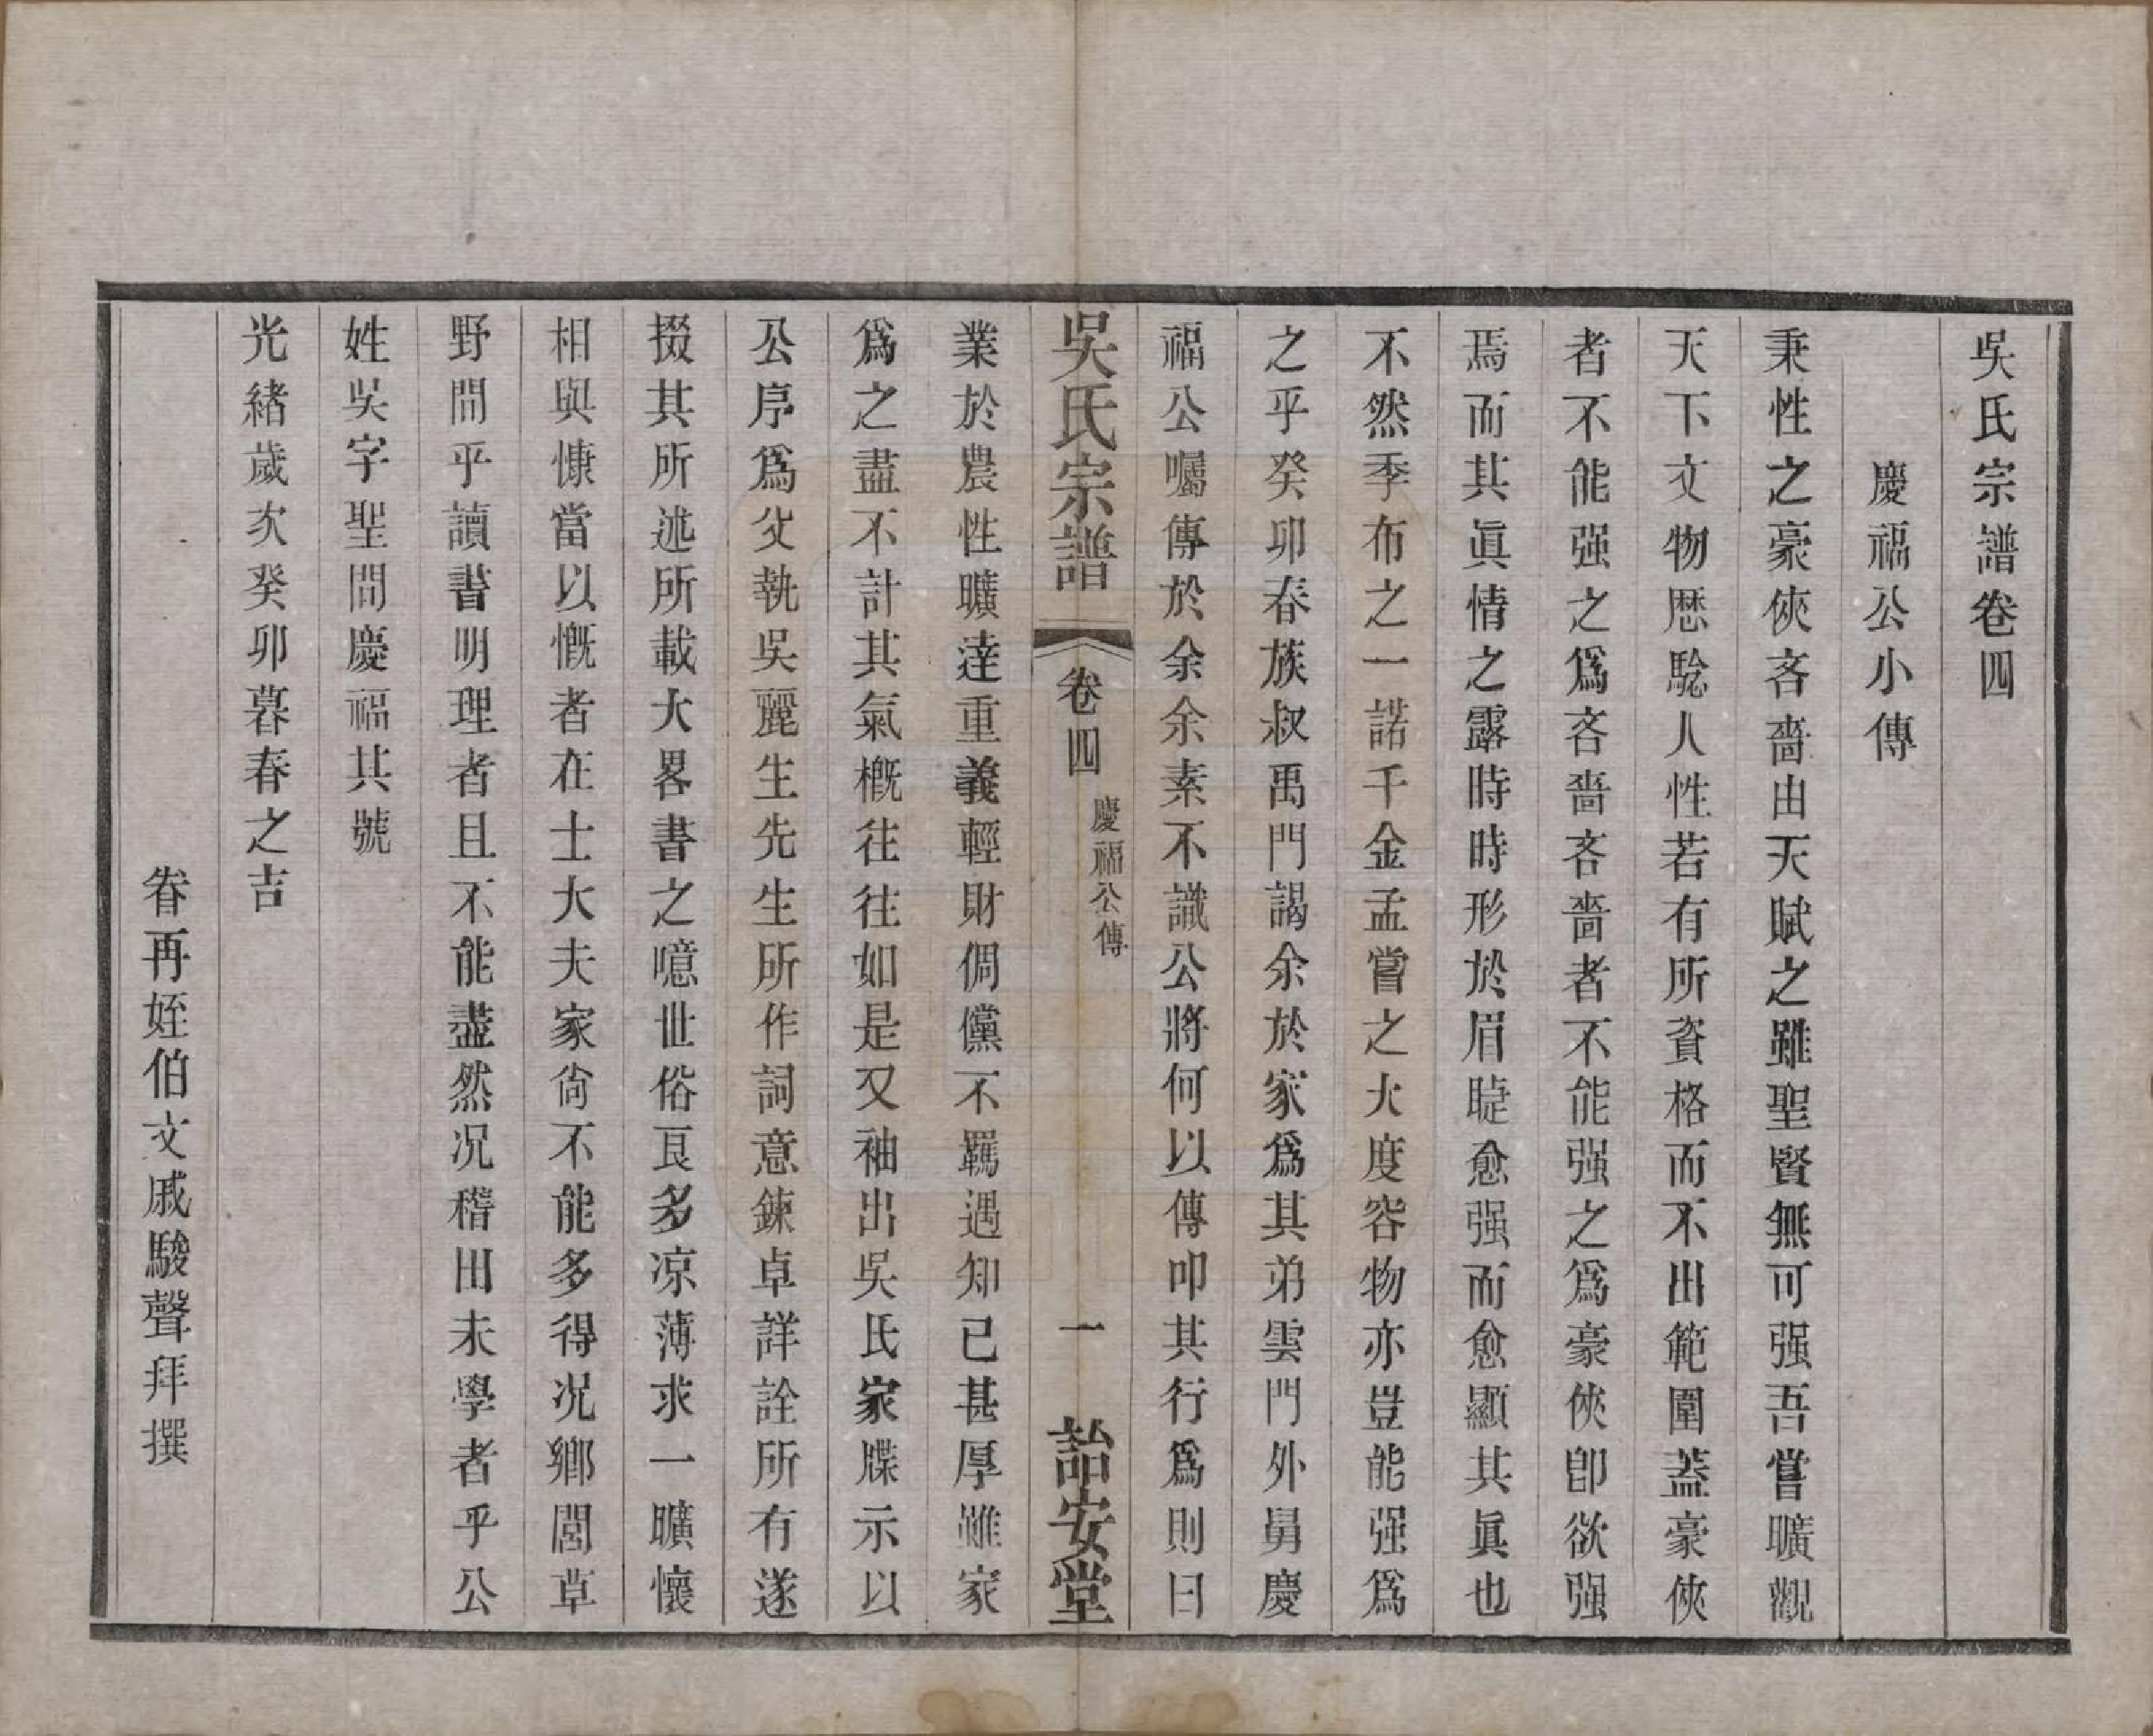 吳氏宗譜卷四
慶福公小傳
秉性之豪俠吝嗇由天賦之雖聖賢無可强吾嘗曠觀
天下文物歴騐人性若有所資格而不出範圍葢豪俠
者不能强之爲吝嗇吝嗇者不能强之爲豪俠卽欲强
焉而其眞情之露時時形於眉睫愈强而愈顯其眞也
不然季布之一諾千金孟嘗之大度容物亦豈能强爲
之乎癸卯春族叔禹門謁余於家爲其弟雲門外舅慶
福公囑傳於余余素不識公將何以傳叩其行爲則曰
吳氏宗譜
卷四
慶福公傳
一
詒安堂
業於農性曠達重義輕財倜儻不羈遇知己甚厚雖家
爲之盡不計其氣概往往如是又袖出吳氏家牒示以
公序爲父執吳麗生先生所作詞意鍊卓詳詮所有遂
掇其所述所載大畧書之噫世俗艮多凉薄求一曠懷
相與慷當以慨者在士大夫家尙不能多得况鄉閭草
野間乎讀書明理者且不能盡然况稽田未學者乎公
姓吳字聖問慶福其號
光緒歲次癸卯暮春之吉
眷再姪伯文戚駿聲拜撰